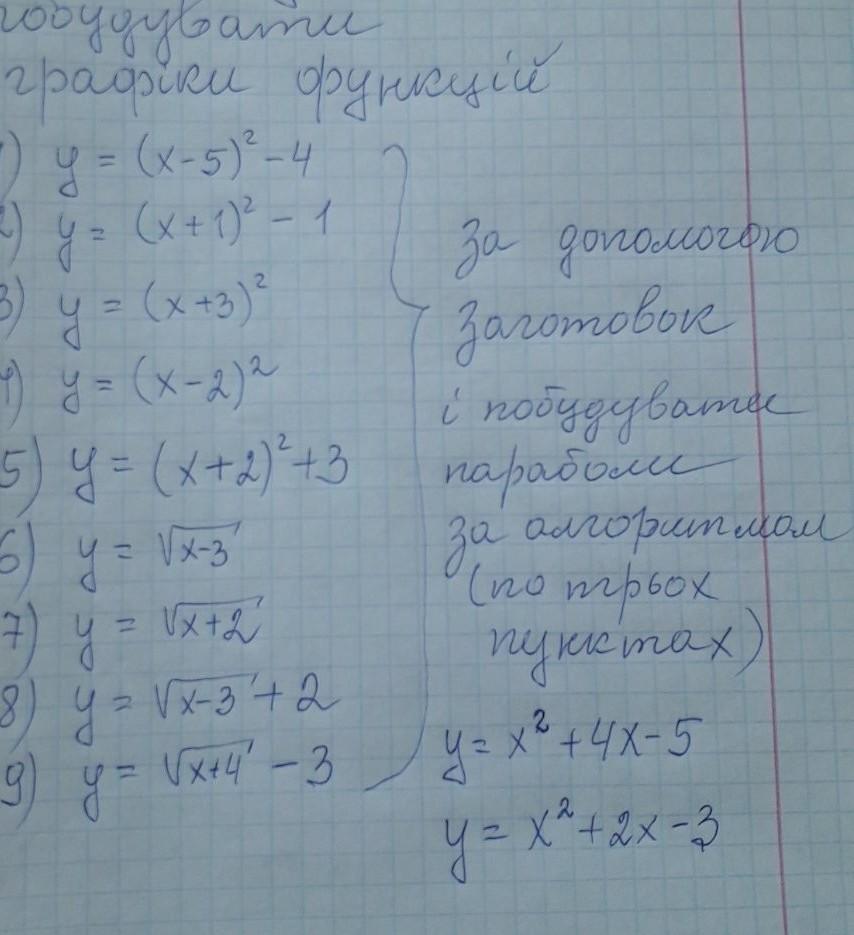 побудувати
графіки функцій
1) y = (x-5)² - 4
2) y = (x+1)² - 1
3) y = (x+3)²
4) y = (x-2)²
5) y = (x+2)² + 3
6) y = √x-3
7) y = √x+2
8) y = √x-3 + 2
9) y = √x+4 - 3
за допомогою
заготовок
і побудувати
параболи
за алгоритмом
(по трьох
пунктах)
y = x² + 4x - 5
y = x² + 2x - 3